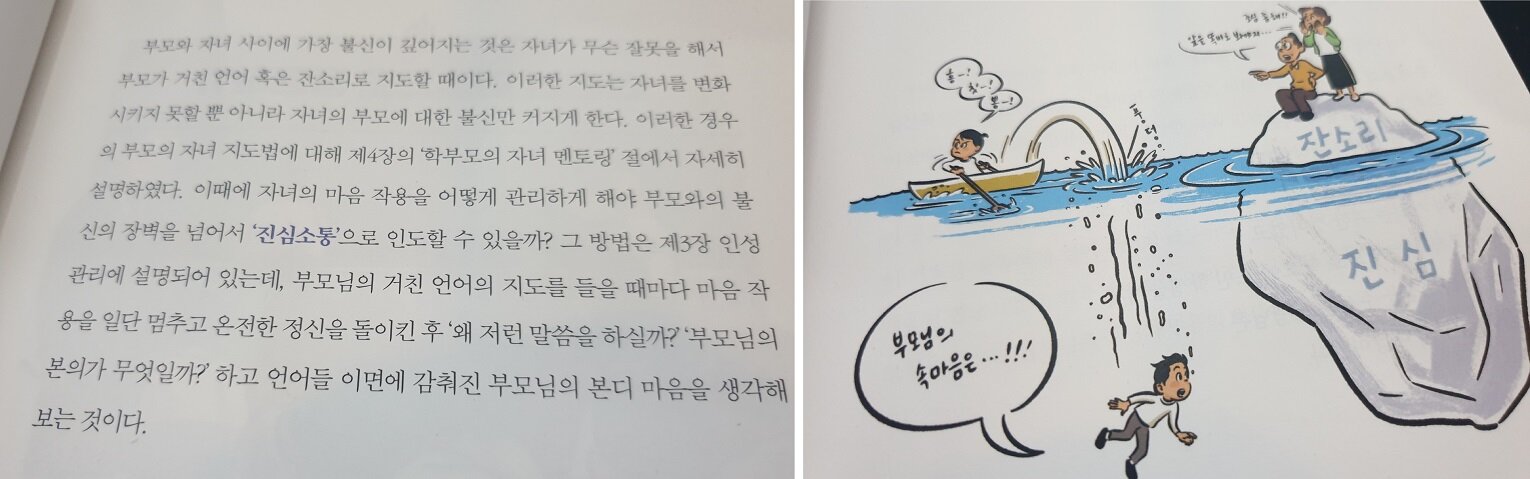 부모와 자녀 사이에 가장 불신이 깊어지는 것은 자녀가 무슨 잘못을 해서
부모가 거친 언어 혹은 잔소리로 지도할 때이다. 이러한 지도는 자녀를 변화
시키지 못할 뿐 아니라 자녀의 부모에 대한 불신만 커지게 한다. 이러한 경우
의 부모의 자녀 지도법에 대해 제4장의 '학부모의 자녀 멘토링' 절에서 자세히
설명하였다. 이때에 자녀의 마음 작용을 어떻게 관리하게 해야 부모와의 불
신의 장벽을 넘어서 '진심소통'으로 인도할 수 있을까? 그 방법은 제3장 인성
관리에 설명되어 있는데, 부모님의 거친 언어의 지도를 들을 때마다 마음 작
용을 일단 멈추고 온전한 정신을 돌이킨 후 '왜 저런 말씀을 하실까?' '부모님의
본의가 무엇일까?' 하고 언어들 이면에 감춰진 부모님의 본디 마음을 생각해
보는 것이다.
앞을 똑바로 봐야지...
흥~!
칫~!
뿡~!
풍덩
잔소리
진심
부모님의
속마음은...!!!